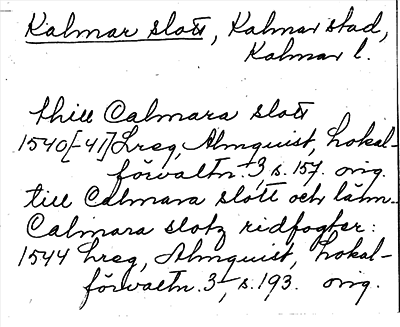 Kalmar slott, Kalmar stad,
Kalmar l.
thill Calmara slott
1540[-41] Lreg, Almquist, Lokal-
förvaltn. 3, s. 157. orig.
till Calmara slott och län..
Calmara slotz ridfogter:
1544 Lreg, Almquist, Lokal-
förvaltn. 3, s. 193. orig.